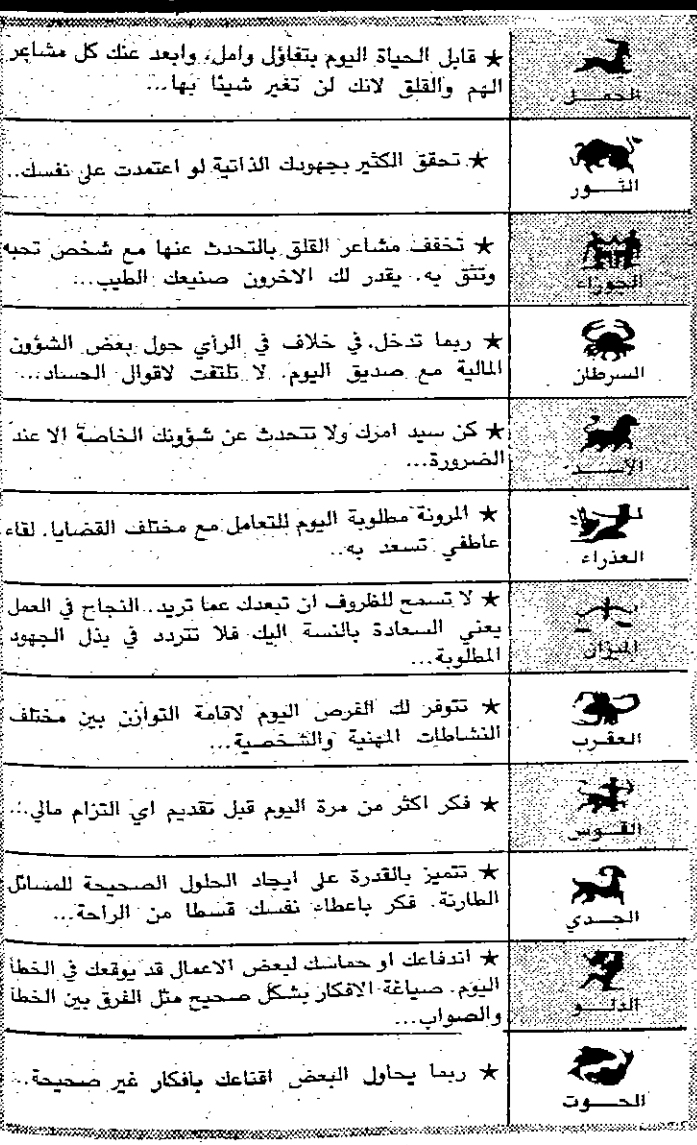 الحمـــل
★ قابل الحياة اليوم بتفاؤل وامل، وابعد عنك كل مشاعر
الهم والقلق لانك لن تغير شيئا بها...
الثـــور
★ تحقق الكثير بجهودك الذاتية لو اعتمدت على نفسك..
الجوزاء
★ تخفف مشاعر القلق بالتحدث عنها مع شخص تحبه
وتثق به. يقدر لك الاخرون صنيعك الطيب...
السرطان
★ ربما تدخل في خلاف في الرأي حول بعض الشؤون
المالية مع صديق اليوم. لا تلتفت لاقوال الحساد...
الاســـد
★ كن سيد امرك ولا تتحدث عن شؤونك الخاصة الا عند
الضرورة...
العذراء
★ المرونة مطلوبة اليوم للتعامل مع مختلف القضايا. لقاء
عاطفي تسعد به..
الميزان
★ لا تسمح للظروف ان تبعدك عما تريد.. النجاح في العمل
يعني السعادة بالنسة اليك فلا تتردد في بذل الجهود
المطلوبة...
العقرب
★ تتوفر لك الفرص اليوم لاقامة التوازن بين مختلف
النشاطات المهنية والشخصية...
القـــوس
★ فكر اكثر من مرة اليوم قبل تقديم اي التزام مالي..
الجـــدي
★ تتميز بالقدرة على ايجاد الحلول الصحيحة للمسائل
الطارئة. فكر باعطاء نفسك قسطا من الراحة...
الدلـــو
★ اندفاعك او حماسك لبعض الاعمال قد يوقعك في الخطأ
اليوم. صياغة الافكار بشكل صحيح مثل الفرق بين الخطأ
والصواب...
الحـــوت
★ ربما يحاول البعض اقناعك بافكار غير صحيحة..